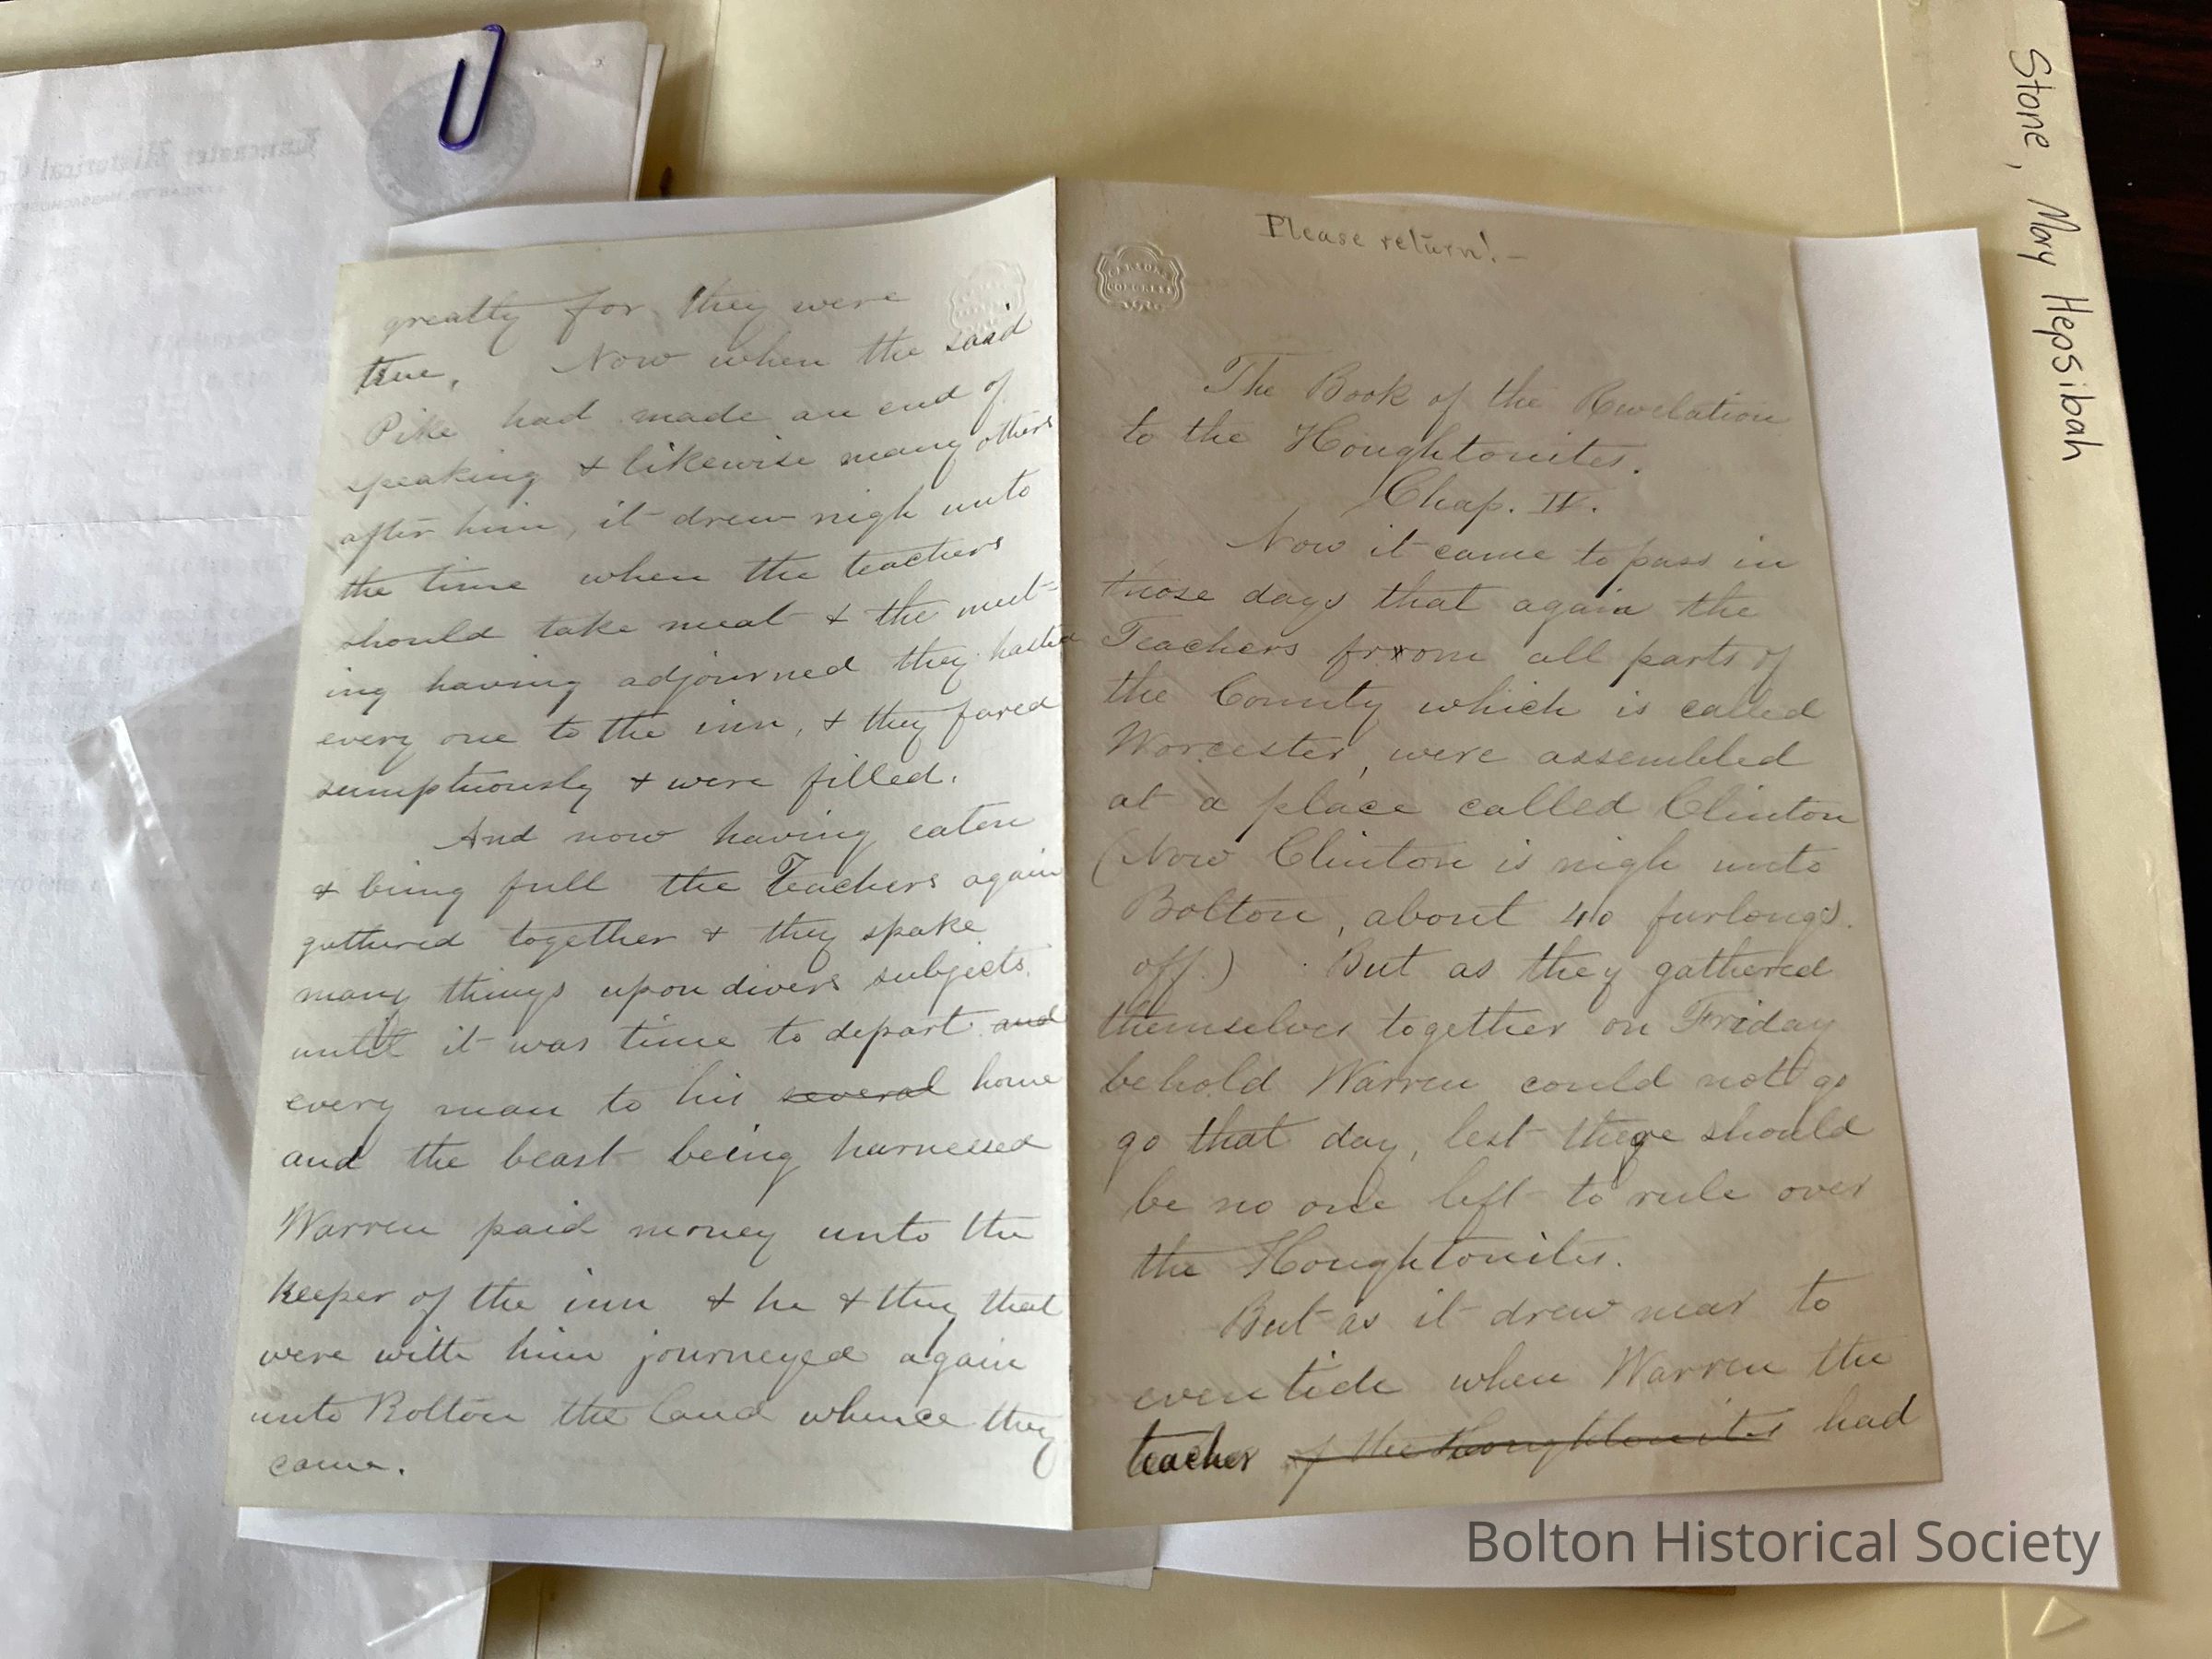 Stone, Mary Hepsibah
Lancaster Historical
Please return!-
CARSON'S
CONGRESS
The Book of the Revelation
to the Houghtonites.
Chap. IV.
Now it came to pass in
those days that again the
Teachers from all parts of
the County which is called
Worcester, were assembled
at a place called Clinton
(Now Clinton is nigh unto
Bolton, about 40 furlongs.
off.) But as they gathered
themselves together on Friday
behold Warren could not go
go that day, lest there should
be no one left to rule over
the Houghtonites.
But as it drew near to
even tide when Warren the
teacher of the Houghtonites had
greatly for they were
true. Now when the said
Pike had made an end of
speaking & likewise many others
after him, it drew nigh unto
the time when the teachers
should take meat & the meet-
ing having adjourned they hasted
every one to the inn, & they fared
sumptuously & were filled.
And now having eaten
& being full the Teachers again
gathered together & they spake
many things upon divers subjects
until it was time to depart and
every man to his several home
and the beast being harnessed
Warren paid money unto the
keeper of the inn & he & they that
were with him journeyed again
unto Bolton the land whence they
came.
Bolton Historical Society